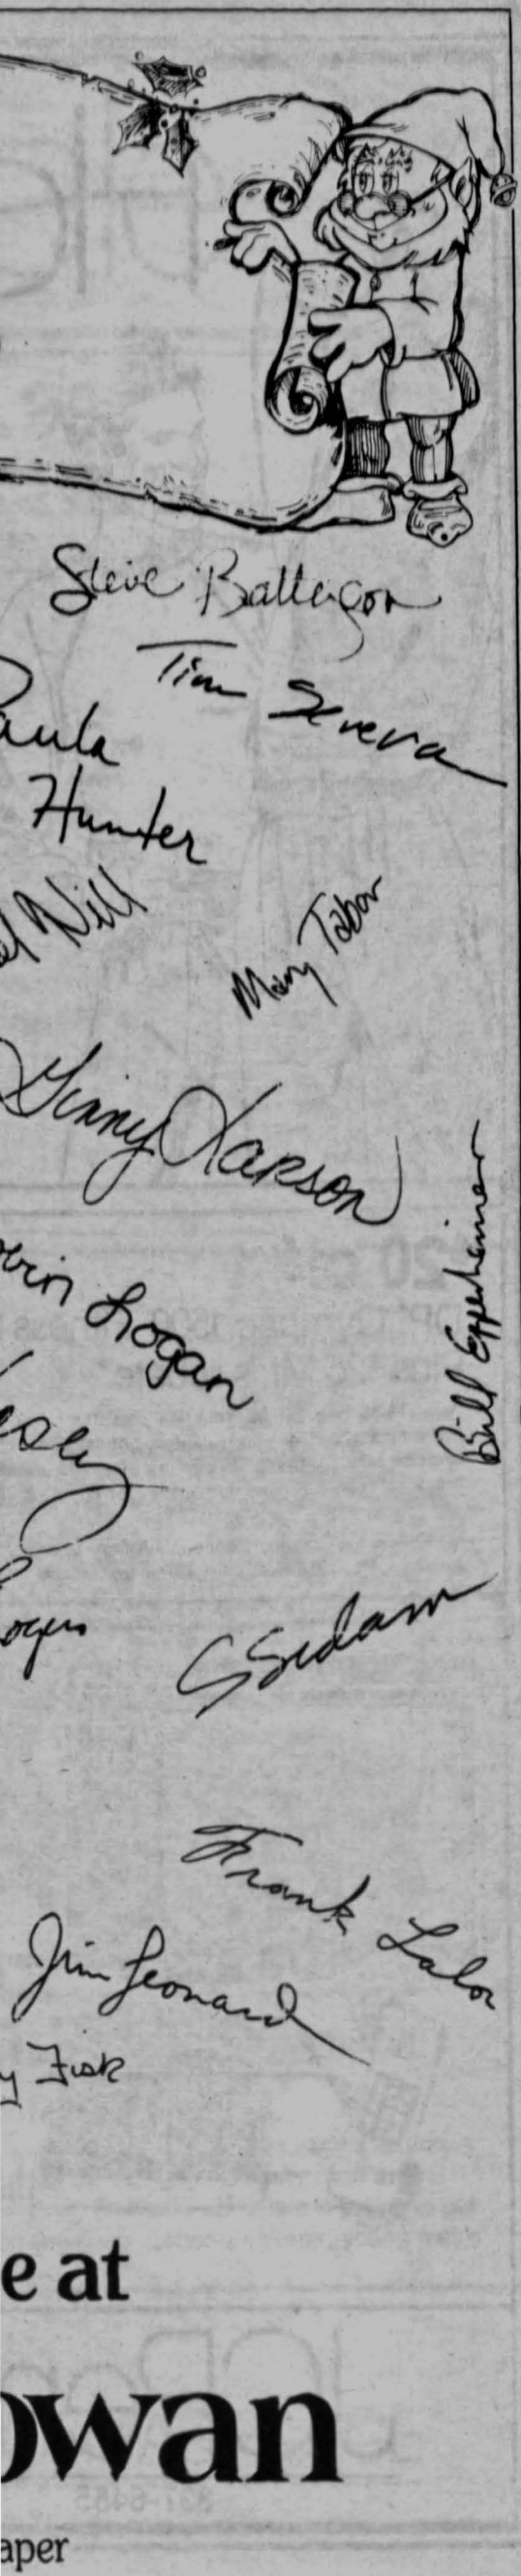 Steve Batterson
Tim Severa
aula
Hunter
Nill
Mary Tabor
Ginny Larson
Logan
Bill Eppenheimer
esley
ogers
S Sedam
Frank Lalor
Jim Leonard
y Fisk
e at
owan
aper